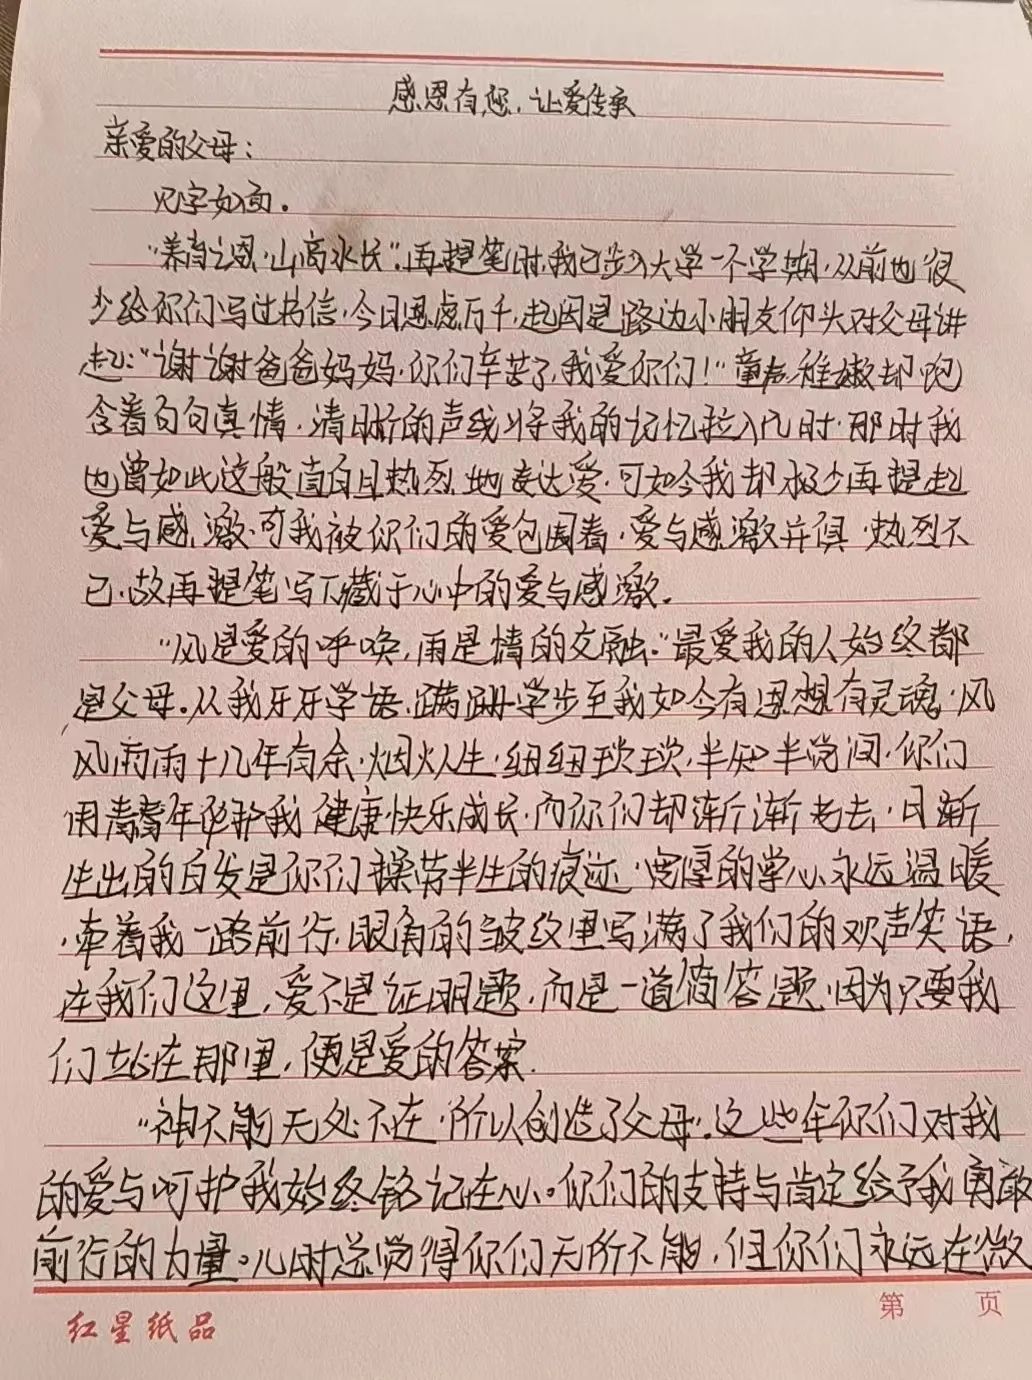 感恩有您，让爱传承
亲爱的父母：
见字如面。
“养育之恩，山高水长”。再提笔时，我已步入大学一个学期，从前也很
少给你们写过书信，今日思虑万千，起因是路边小朋友仰头对父母讲
起：“谢谢爸爸妈妈，你们辛苦了，我爱你们！”童声稚嫩却饱
含着句句真情，清晰的声线将我的记忆拉入儿时，那时我
也曾如此这般直白且热烈地表达爱，可如今我却极少再提起
爱与感激，可我被你们的爱包围着，爱与感激并俱，热烈不
已，故再提笔写下藏于心中的爱与感激。
“风是爱的呼唤，雨是情的交融。”最爱我的人始终都
是父母。从我牙牙学语，蹒跚学步至我如今有思想有灵魂，风
风雨雨十几年有余，烟火人生，细细琐琐，半知半觉间，你们
用青春年华护我健康快乐成长，而你们却渐渐老去，日渐
生出的白发是你们操劳半生的痕迹，宽厚的掌心永远温暖
，牵着我一路前行，眼角的皱纹里写满了我们的欢声笑语，
在我们这里，爱不是证明题，而是一道简答题，因为只要我
们站在那里，便是爱的答案.
“神不能无处不在，所以创造了父母”。这些年你们对我
的爱与呵护我始终铭记在心。你们的支持与肯定给予我勇敢
前行的力量。儿时总觉得你们无所不能，但你们永远在微
红星纸品
第 页